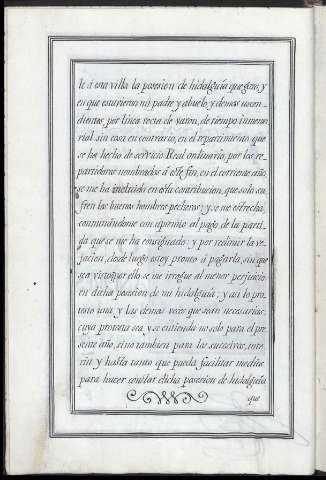 te á esta villa la posesion de hidalguia que gozo, y
en que estuvieron mi padre y abuelo, y demas ascen-
dientes por linea recta de varon, de tiempo inmemo-
rial sin cosa en contrario, en el repartimiento que
se ha hecho de servicio Real ordinario, por los re-
partidores nombrados á este fin, en el corriente año,
se me ha incluido en esta contribucion, que solo su-
fren los buenos hombres pecheros; y se me estrecha,
conminándome con apremio al pago de la parti-
da que se me ha consignado: y por redimir la ve-
jacion, desde luego estoy pronto á pagarla, sin que
sea visto que por ello se me irrogue el menor perjuicio
en dicha posesion de mi hidalguia; y asi lo pro-
texto una y las demas veces que sean necesarias:
cuya protexta sea, y se entienda no solo para el pre-
sente año, sino tambien para los sucesivos, inte-
rin y hasta tanto que pueda facilitar medios
para hacer constar dicha posesion de hidalguia
que